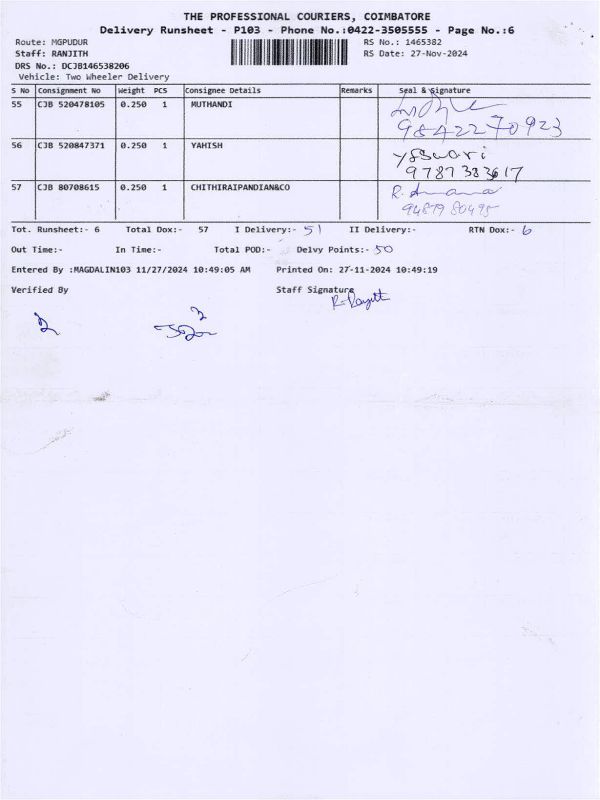 THE PROFESSIONAL COURIERS, COIMBATORE
Delivery Runsheet - P103 - Phone No.:0422-3505555 - Page No.:6
Route: MGPUDUR RS No.: 1465382
Staff: RANJITH RS Date: 27-Nov-2024
DRS No.: DCJB146538206
Vehicle: Two Wheeler Delivery
S No Consignment No Weight PCS Consignee Details Remarks Seal & Signature
55 CJB 520478105 0.250 1 MUTHANDI
9842270923
56 CJB 520847371 0.250 1 YAHISH
9787383617
57 CJB 80708615 0.250 1 CHITHIRAIPANDIAN&CO R.
94879 80495
Tot. Runsheet:- 6 Total Dox:- 57 I Delivery:- 51 II Delivery:- RTN Dox:- 6
Out Time:- In Time:- Total POD:- Delvy Points:- 50
Entered By :MAGDALIN103 11/27/2024 10:49:05 AM Printed On: 27-11-2024 10:49:19
Verified By Staff Signature